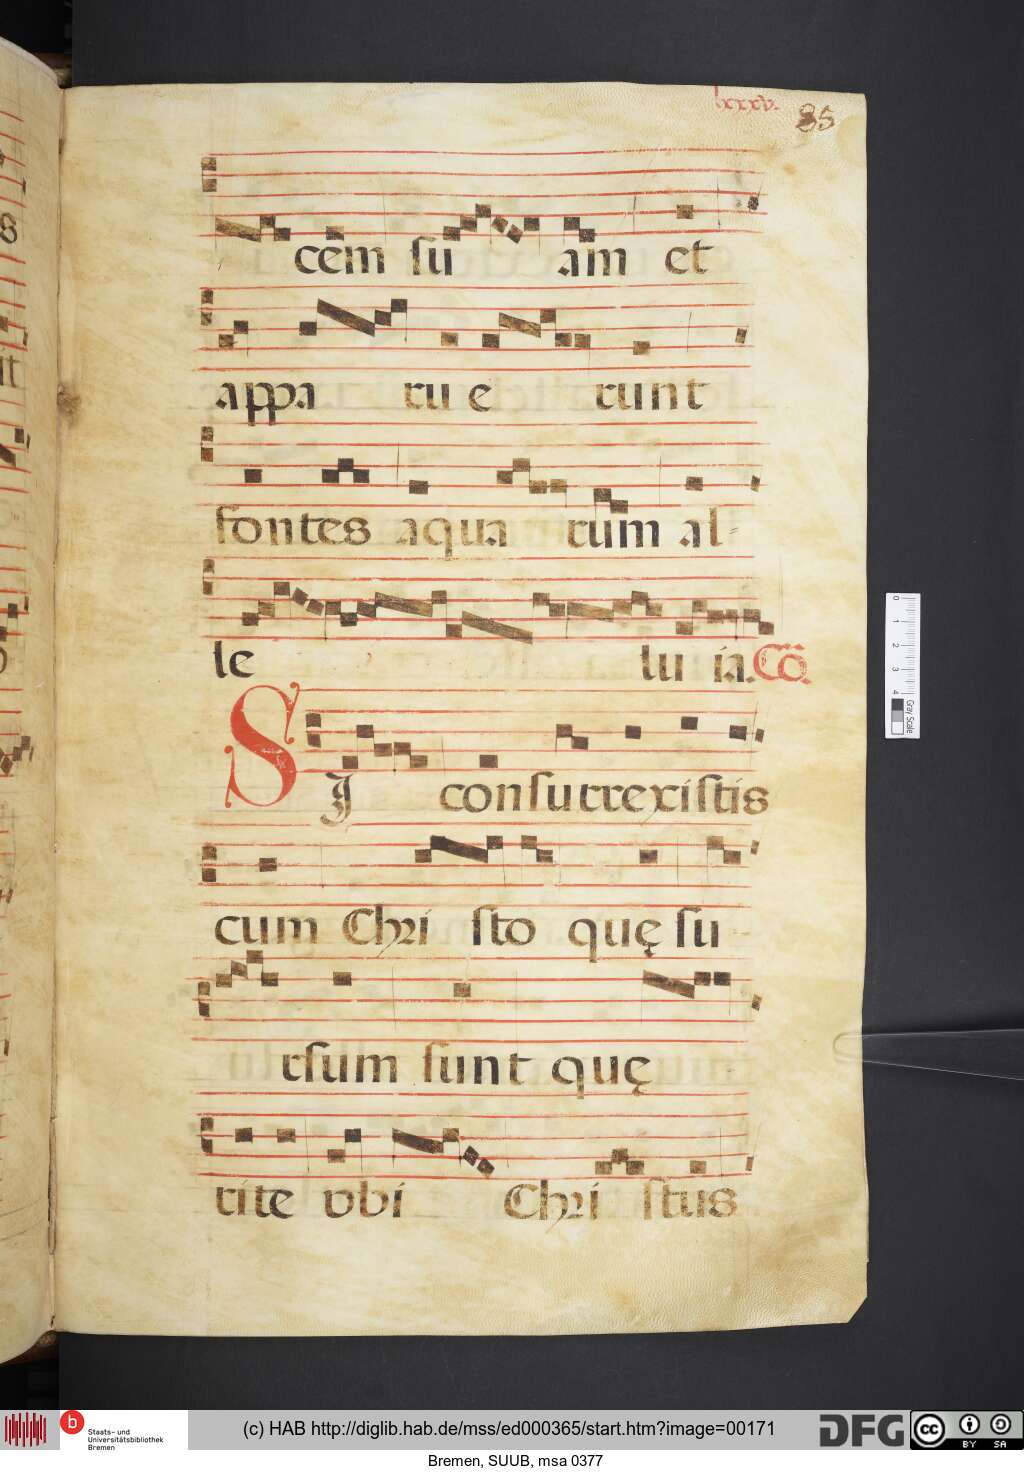 lxxxv. 85
cem su am et
appa ru e runt
fontes aqua rum al-
le lu ia. Cō.
SI consurrexistis
cum Chri sto quę su
rsum sunt quę
rite vbi Chri stus
0 1 2 3 4
Gray Scale
b Staats- und Universitätsbibliothek Bremen
(c) HAB http://diglib.hab.de/mss/ed000365/start.htm?image=00171
DFG cc BY SA
Bremen, SUUB, msa 0377